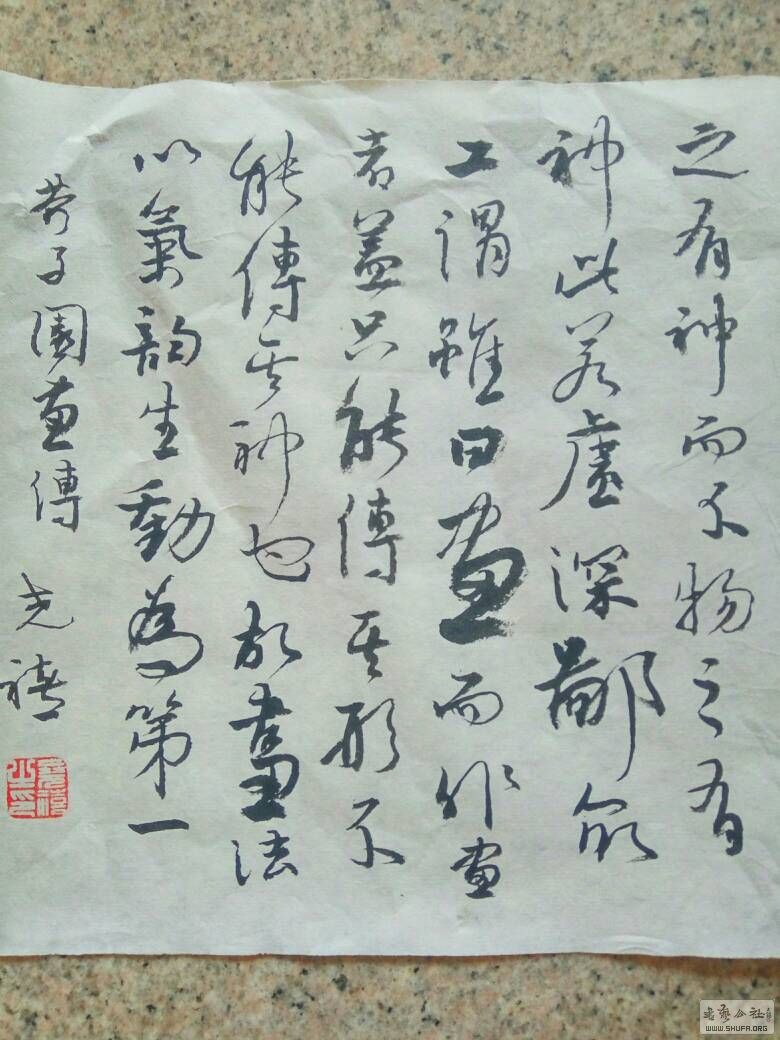 之有神而不物之有
神此若虛深鄙眾
工謂雖曰畫而非畫
者蓋只能傳其形不
能傳其神也故畫法
以氣韵生動為第一
芥子園畫傳 光禧
書藝公社
WWW.SHUFA.ORG